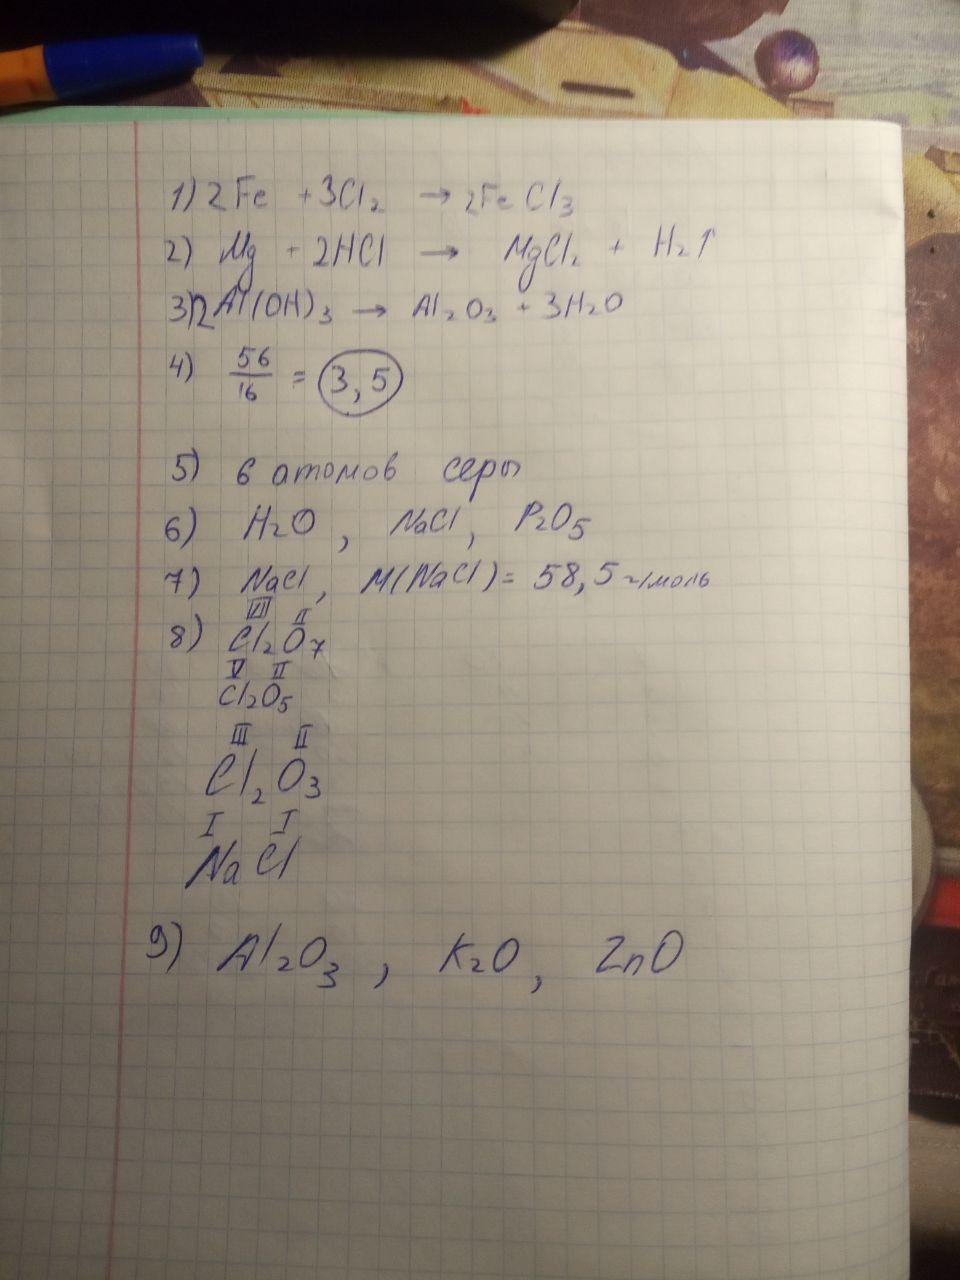 1) 2Fe + 3Cl₂ → 2FeCl₃
2) Mg + 2HCl → MgCl₂ + H₂↑
3) 2Al(OH)₃ → Al₂O₃ + 3H₂O
4) 56/16 = 3,5
5) 6 атомов серы
6) H₂O, NaCl, P₂O₅
7) NaCl, M(NaCl) = 58,5 г/моль
VII II
8) Cl₂O₇
V II
Cl₂O₅
III II
Cl₂O₃
I I
NaCl
9) Al₂O₃, K₂O, ZnO